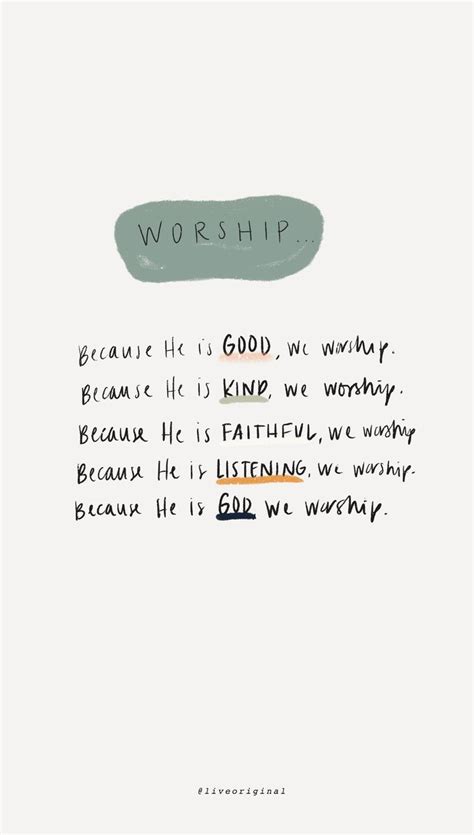 WORSHIP...
Because He is GOOD, we worship.
Because He is KIND, we worship.
Because He is FAITHFUL, we worship
Because He is LISTENING, we worship.
Because He is GOD we worship.
@liveoriginal